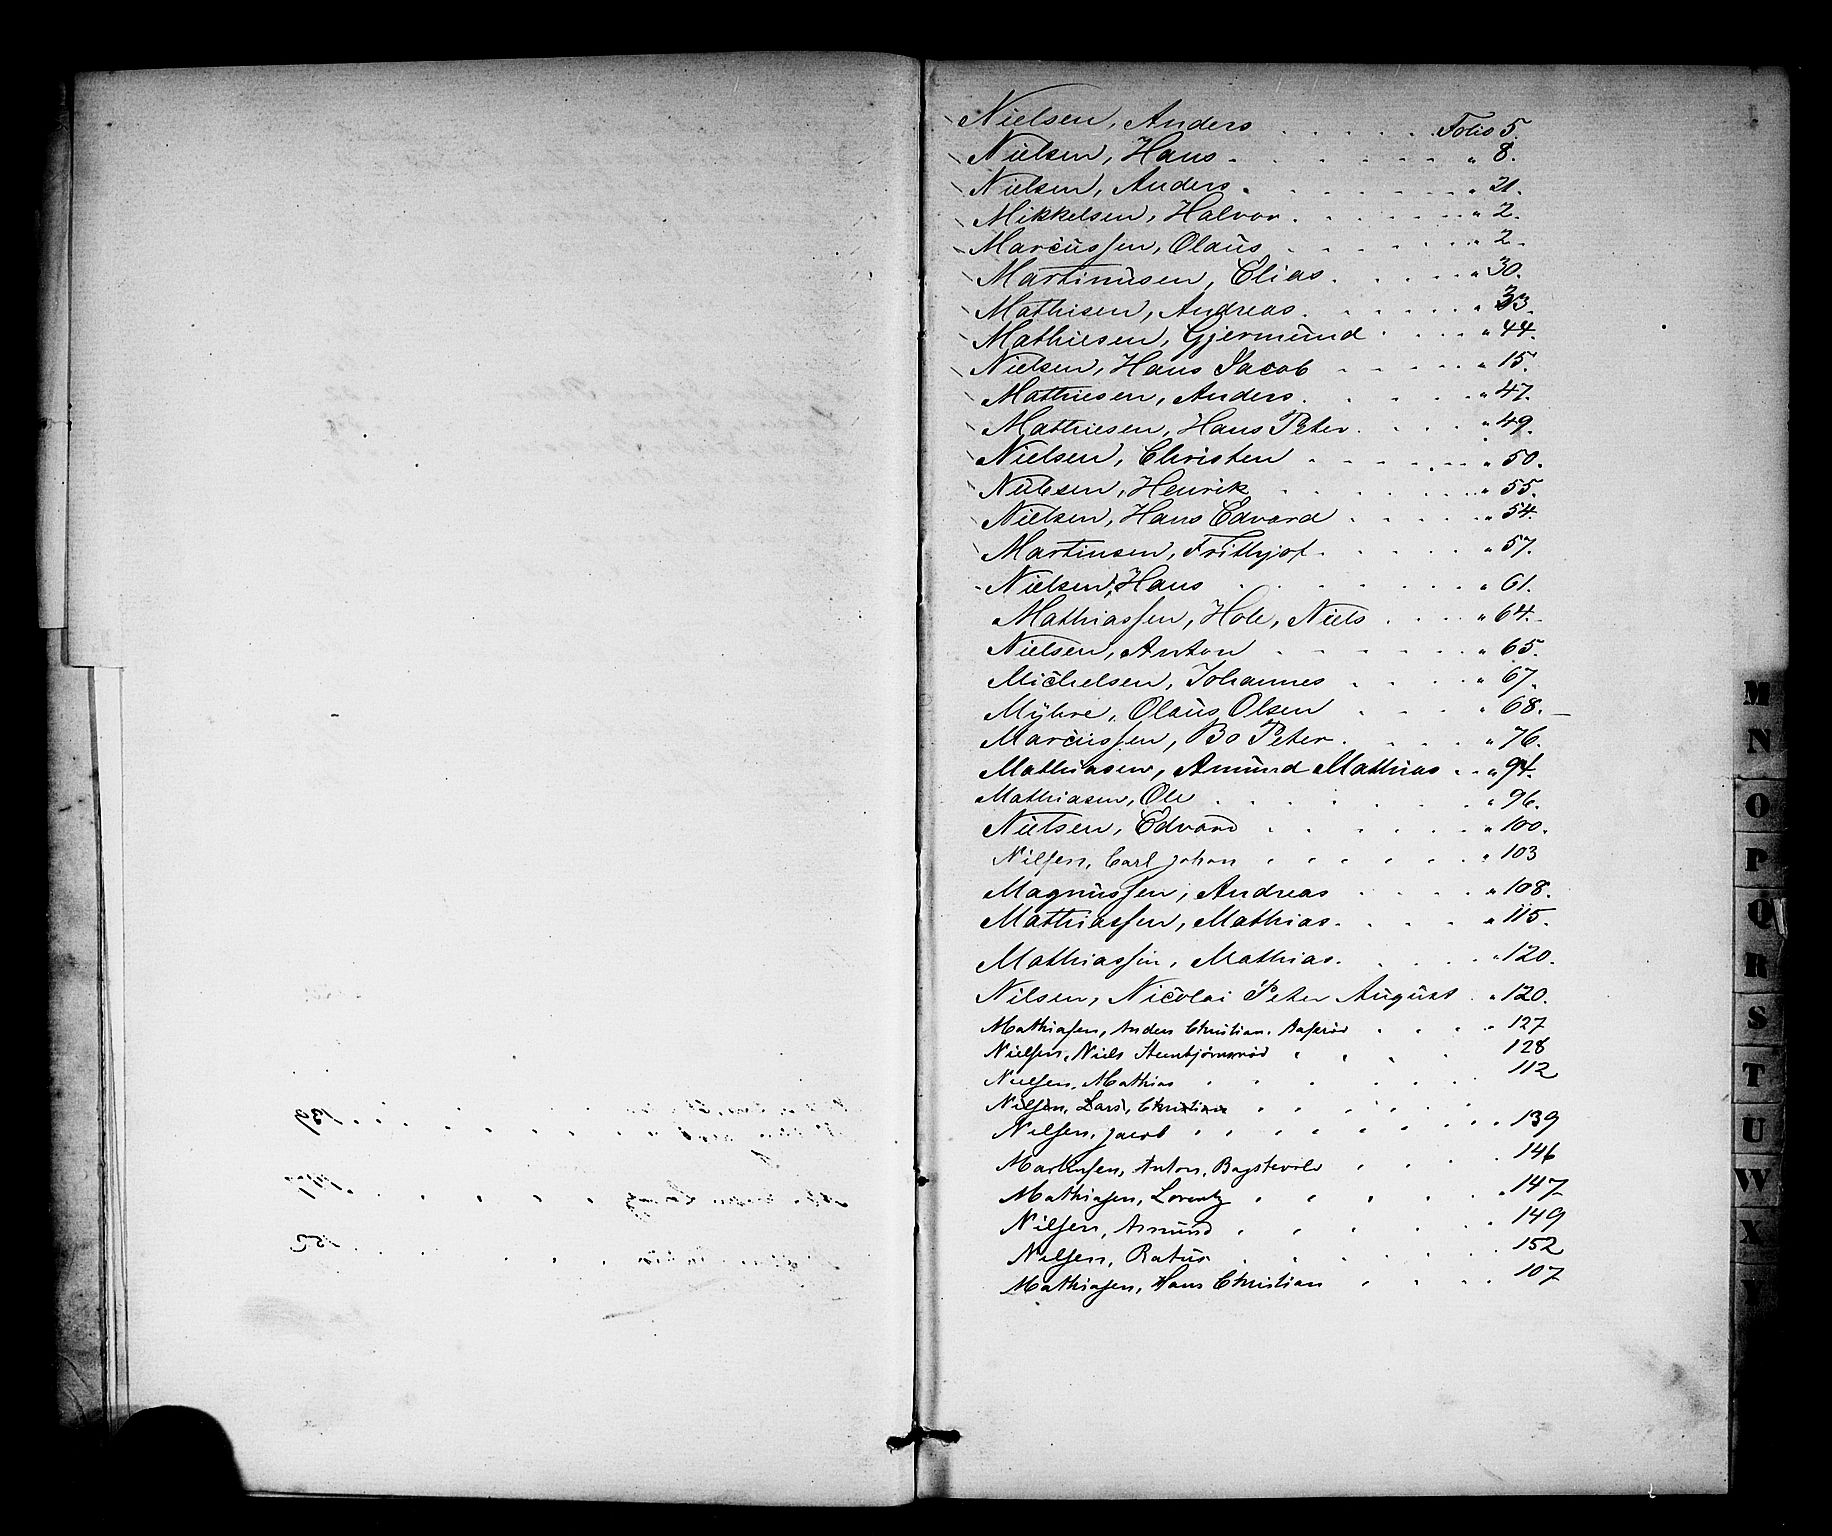 Nielsen, Anders . . . . . . Folio 5.
Nielsen, Hans . . . . . . " 8.
Nielsen, Anders . . . . . . " 21.
Mikkelsen, Halvor . . . . . . " 2.
Marcussen, Olaus . . . . . . " 2.
Martinusen, Elias . . . . . " 30.
Mathisen, Andreas . . . . . . " 33.
Mathiesen, Gjermund . . . . " 44.
Nielsen, Hans Jacob . . . . . " 15.
Mathiesen, Anders . . . . . " 47.
Mathiesen, Hans Peter . . . . " 49.
Nielsen, Christen . . . . . . " 50.
Nielsen, Henrik . . . . . . " 55.
Nielsen, Hans Edvard . . . . " 54.
Martinsen, Frithjof . . . . . " 57.
Nielsen, Hans . . . . . . " 61.
Mathiassen, Hole, Niels . . . . " 64.
Nielsen, Anton . . . . . . " 65.
Michelsen, Johannes . . . . " 67.
Myhre, Olaus Olsen . . . . " 68.
Marcussen, Bo Peter . . . . " 76.
Mathiasen, Amund Mathias . . " 94.
Mathiasen, Ole . . . . . . " 96.
Nielsen, Edvard . . . . . . " 100.
Nilsen, Carl Johan . . . . . . " 103
Magnussen, Andreas . . . . " 108.
Mathiassen, Mathias . . . . . " 115.
Mathiassen, Mathias . . . . . " 120.
Nilsen, Nicolai Peter August . " 120.
Mathiasen, Anders Christian . . . . " 127
Nielsen, Niels . . . . 128
Nielsen, Mathias . . . . . . 112
Nilsen, Lars, Christian . . . . . .
Nilsen, Jacob . . . . . . . 139
Martinsen, Anton, . . . 146
Mathiasen, Lorentz . . . . . 147
Nilsen, Amund . . . . . 149
Nilsen, Ratus . . . . . 152
Mathiasen, Hans Christian . . . . 107
M
N
O
P
Q
R
S
T
U
W
X
Y